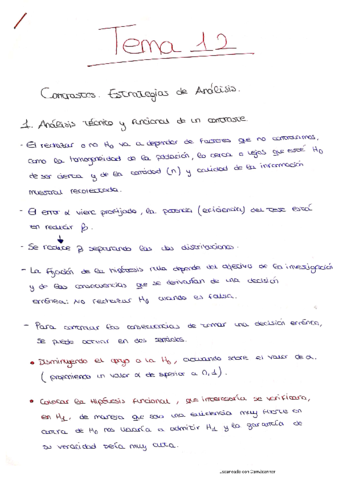 Tema 12
Contrastes. Estrategias de Análisis.
1. Análisis técnico y funcional de un contraste
- El rechazar o no H0 va a depender de factores que no controlamos,
como la homogeneidad de la población, lo cerca o lejos que esté H0
de ser cierta y de la cantidad (n) y calidad de la información
muestral recolectada.
- El error α viene prefijado, la potencia (eficiencia) del test está
en reducir β.
- Se reduce β separando las dos distribuciones.
- La fijación de la hipótesis nula depende del objetivo de la investigación
y de las consecuencias que se derivarían de una decisión
errónea: No rechazar H0 cuando es falsa.
- Para controlar las consecuencias de tomar una decisión errónea,
se puede actuar en dos sentidos.
• Disminuyendo el apoyo a la H0, actuando sobre el valor de α,
( proponiendo un valor α de superior a 0,1).
• Colocar la hipótesis funcional, que interesaría se verificara,
en H1, de manera que solo una evidencia muy fuerte en
contra de H0 nos llevaría a admitir H1 y la garantía de
su veracidad sería muy alta.
Escaneado con CamScanner